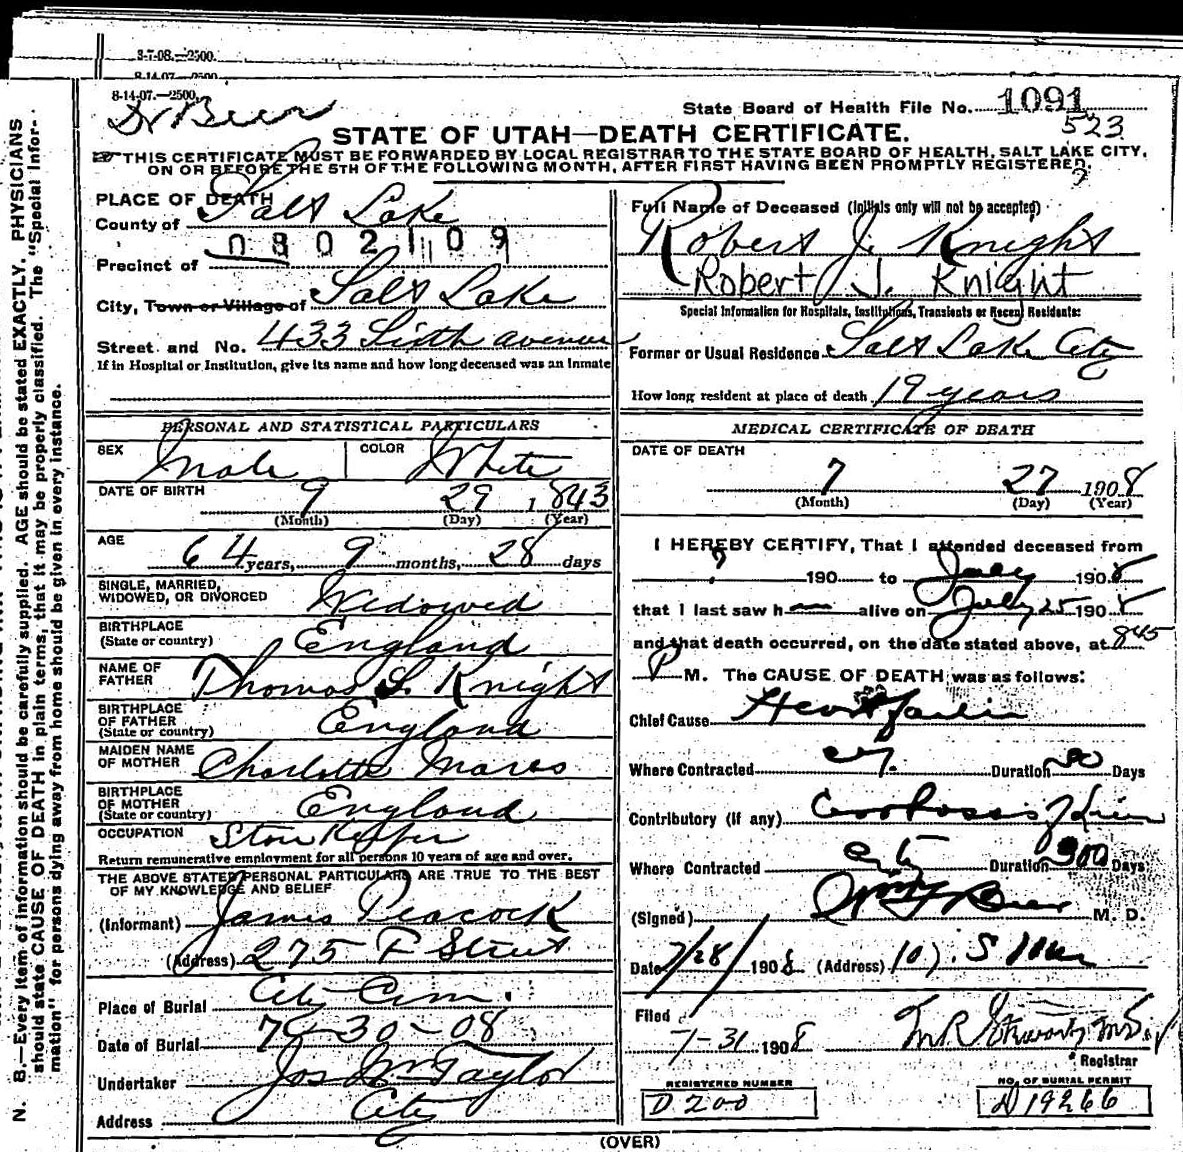 3-7-08.—2500.
8-14-07.—2500.
8-14-07.—2500.
Dr Beer
State Board of Health File No. 1091
523
STATE OF UTAH—DEATH CERTIFICATE.
THIS CERTIFICATE MUST BE FORWARDED BY LOCAL REGISTRAR TO THE STATE BOARD OF HEALTH, SALT LAKE CITY,
ON OR BEFORE THE 5TH OF THE FOLLOWING MONTH, AFTER FIRST HAVING BEEN PROMPTLY REGISTERED.
PLACE OF DEATH
County of Salt Lake
0802109
Precinct of
City, Town or Village of Salt Lake
Street and No. 433 Sixth avenue
If in Hospital or Institution, give its name and how long deceased was an inmate
PERSONAL AND STATISTICAL PARTICULARS
SEX Male COLOR White
DATE OF BIRTH 9 29 1843
(Month) (Day) (Year)
AGE
64 years, 9 months, 28 days
SINGLE, MARRIED,
WIDOWED, OR DIVORCED Widowed
BIRTHPLACE
(State or country) England
NAME OF
FATHER Thomas S. Knight
BIRTHPLACE
OF FATHER
(State or country) England
MAIDEN NAME
OF MOTHER Charlotte Mares
BIRTHPLACE
OF MOTHER
(State or country) England
OCCUPATION Store Keeper
Return remunerative employment for all persons 10 years of age and over.
THE ABOVE STATED PERSONAL PARTICULARS ARE TRUE TO THE BEST
OF MY KNOWLEDGE AND BELIEF
(Informant) James Peacock
(Address) 275 F Street
Place of Burial City Cem.
Date of Burial 7-30-08
Undertaker Jos Wm Taylor
Address City
Full Name of Deceased (Initials only will not be accepted)
Robert J. Knight
Robert J. Knight
Special Information for Hospitals, Institutions, Transients or Recent Residents:
Former or Usual Residence Salt Lake City
How long resident at place of death 19 years
MEDICAL CERTIFICATE OF DEATH
DATE OF DEATH
7 27 1908
(Month) (Day) (Year)
I HEREBY CERTIFY, That I attended deceased from
? 190 to July 1908
that I last saw h alive on July 25 1908
and that death occurred, on the date stated above, at 845
P M. The CAUSE OF DEATH was as follows:
Chief Cause Heart failure
Where Contracted Duration Days
Contributory (if any)
Where Contracted city Duration 300 Days
(Signed) Beer M. D.
Date 7/28/1908 (Address)
Filed
7-31 1908
Registrar
REGISTERED NUMBER
D 200
NO. OF BURIAL PERMIT
A 19266
(OVER)
N. B.—Every item of information should be carefully supplied. AGE should be stated EXACTLY. PHYSICIANS
should state CAUSE OF DEATH in plain terms, that it may be properly classified. The "Special Infor-
mation" for persons dying away from home should be given in every instance.